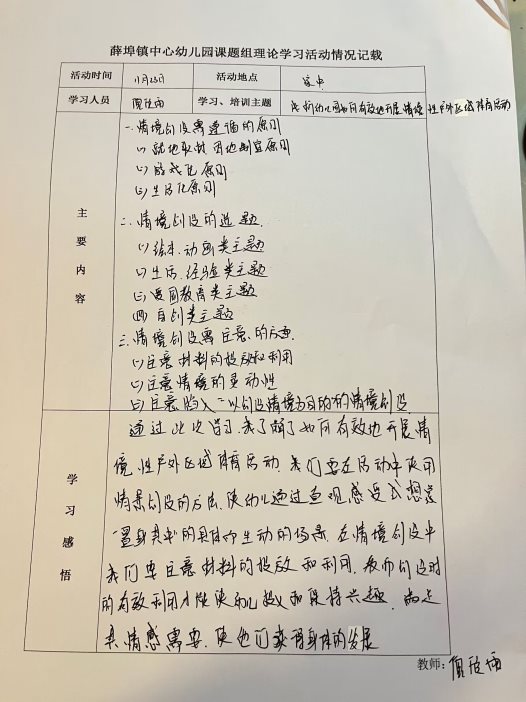 薛埠镇中心幼儿园课题组理论学习活动情况记载
活动时间 11月23日 活动地点 家中
学习人员 学习、培训主题 浅析幼儿园如何有效地开展情境性户外区域体育活动
主要内容
一.情境创设需遵循的原则
(一) 就地取材 因地制宜原则
(二) 游戏化原则
(三) 生活化原则
二.情境创设的选题
(一) 绘本.动画类主题
(二) 生活.经验类主题
(三) 爱国教育类主题
(四) 自创类主题
三.情境创设需注意的方面
(一) 注意材料的投放和利用
(二) 注意情境的灵动性
(三) 注意陷入“以创设情境为目的”的情境创设
学习感悟
通过此次学习,我了解了如何有效地开展情
境性户外区域体育活动.我们要在活动中使用
情景创设的方法,使幼儿通过直观感受或想象
置身其中的具体的生动的场景.在情境创设中
我们要注意材料的投放和利用,及而创设时
的有效利用才能使幼儿投入和保持兴趣.满足
其情感需要.使他们获得身体的发展
教师: